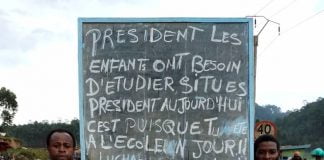 PRÉSIDENT LES
ENFANTS ONT BESOIN
D'ETUDIER. SI TU ES
PRESIDENT AUJOURD'HUI
C'EST PUISQUE TU ÉTÉ
A L'ECOLE UN JOUR!!
40